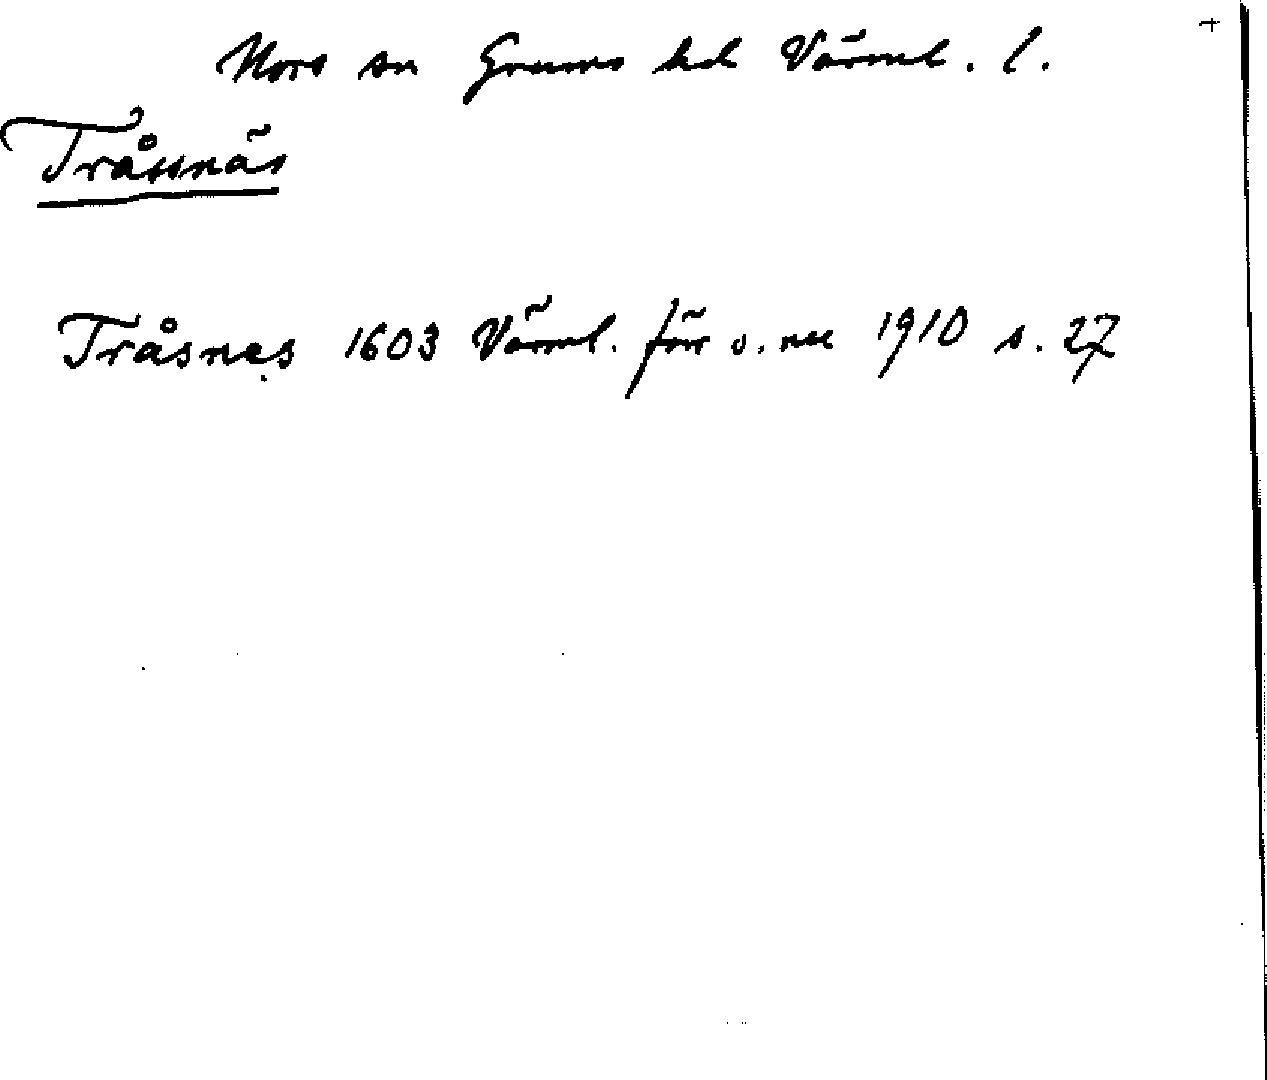 +
Nors sn Grums hd Värml. l.
Tråssnäs
Tråsnes 1603 Värml. förr o. nu 1910 s. 27